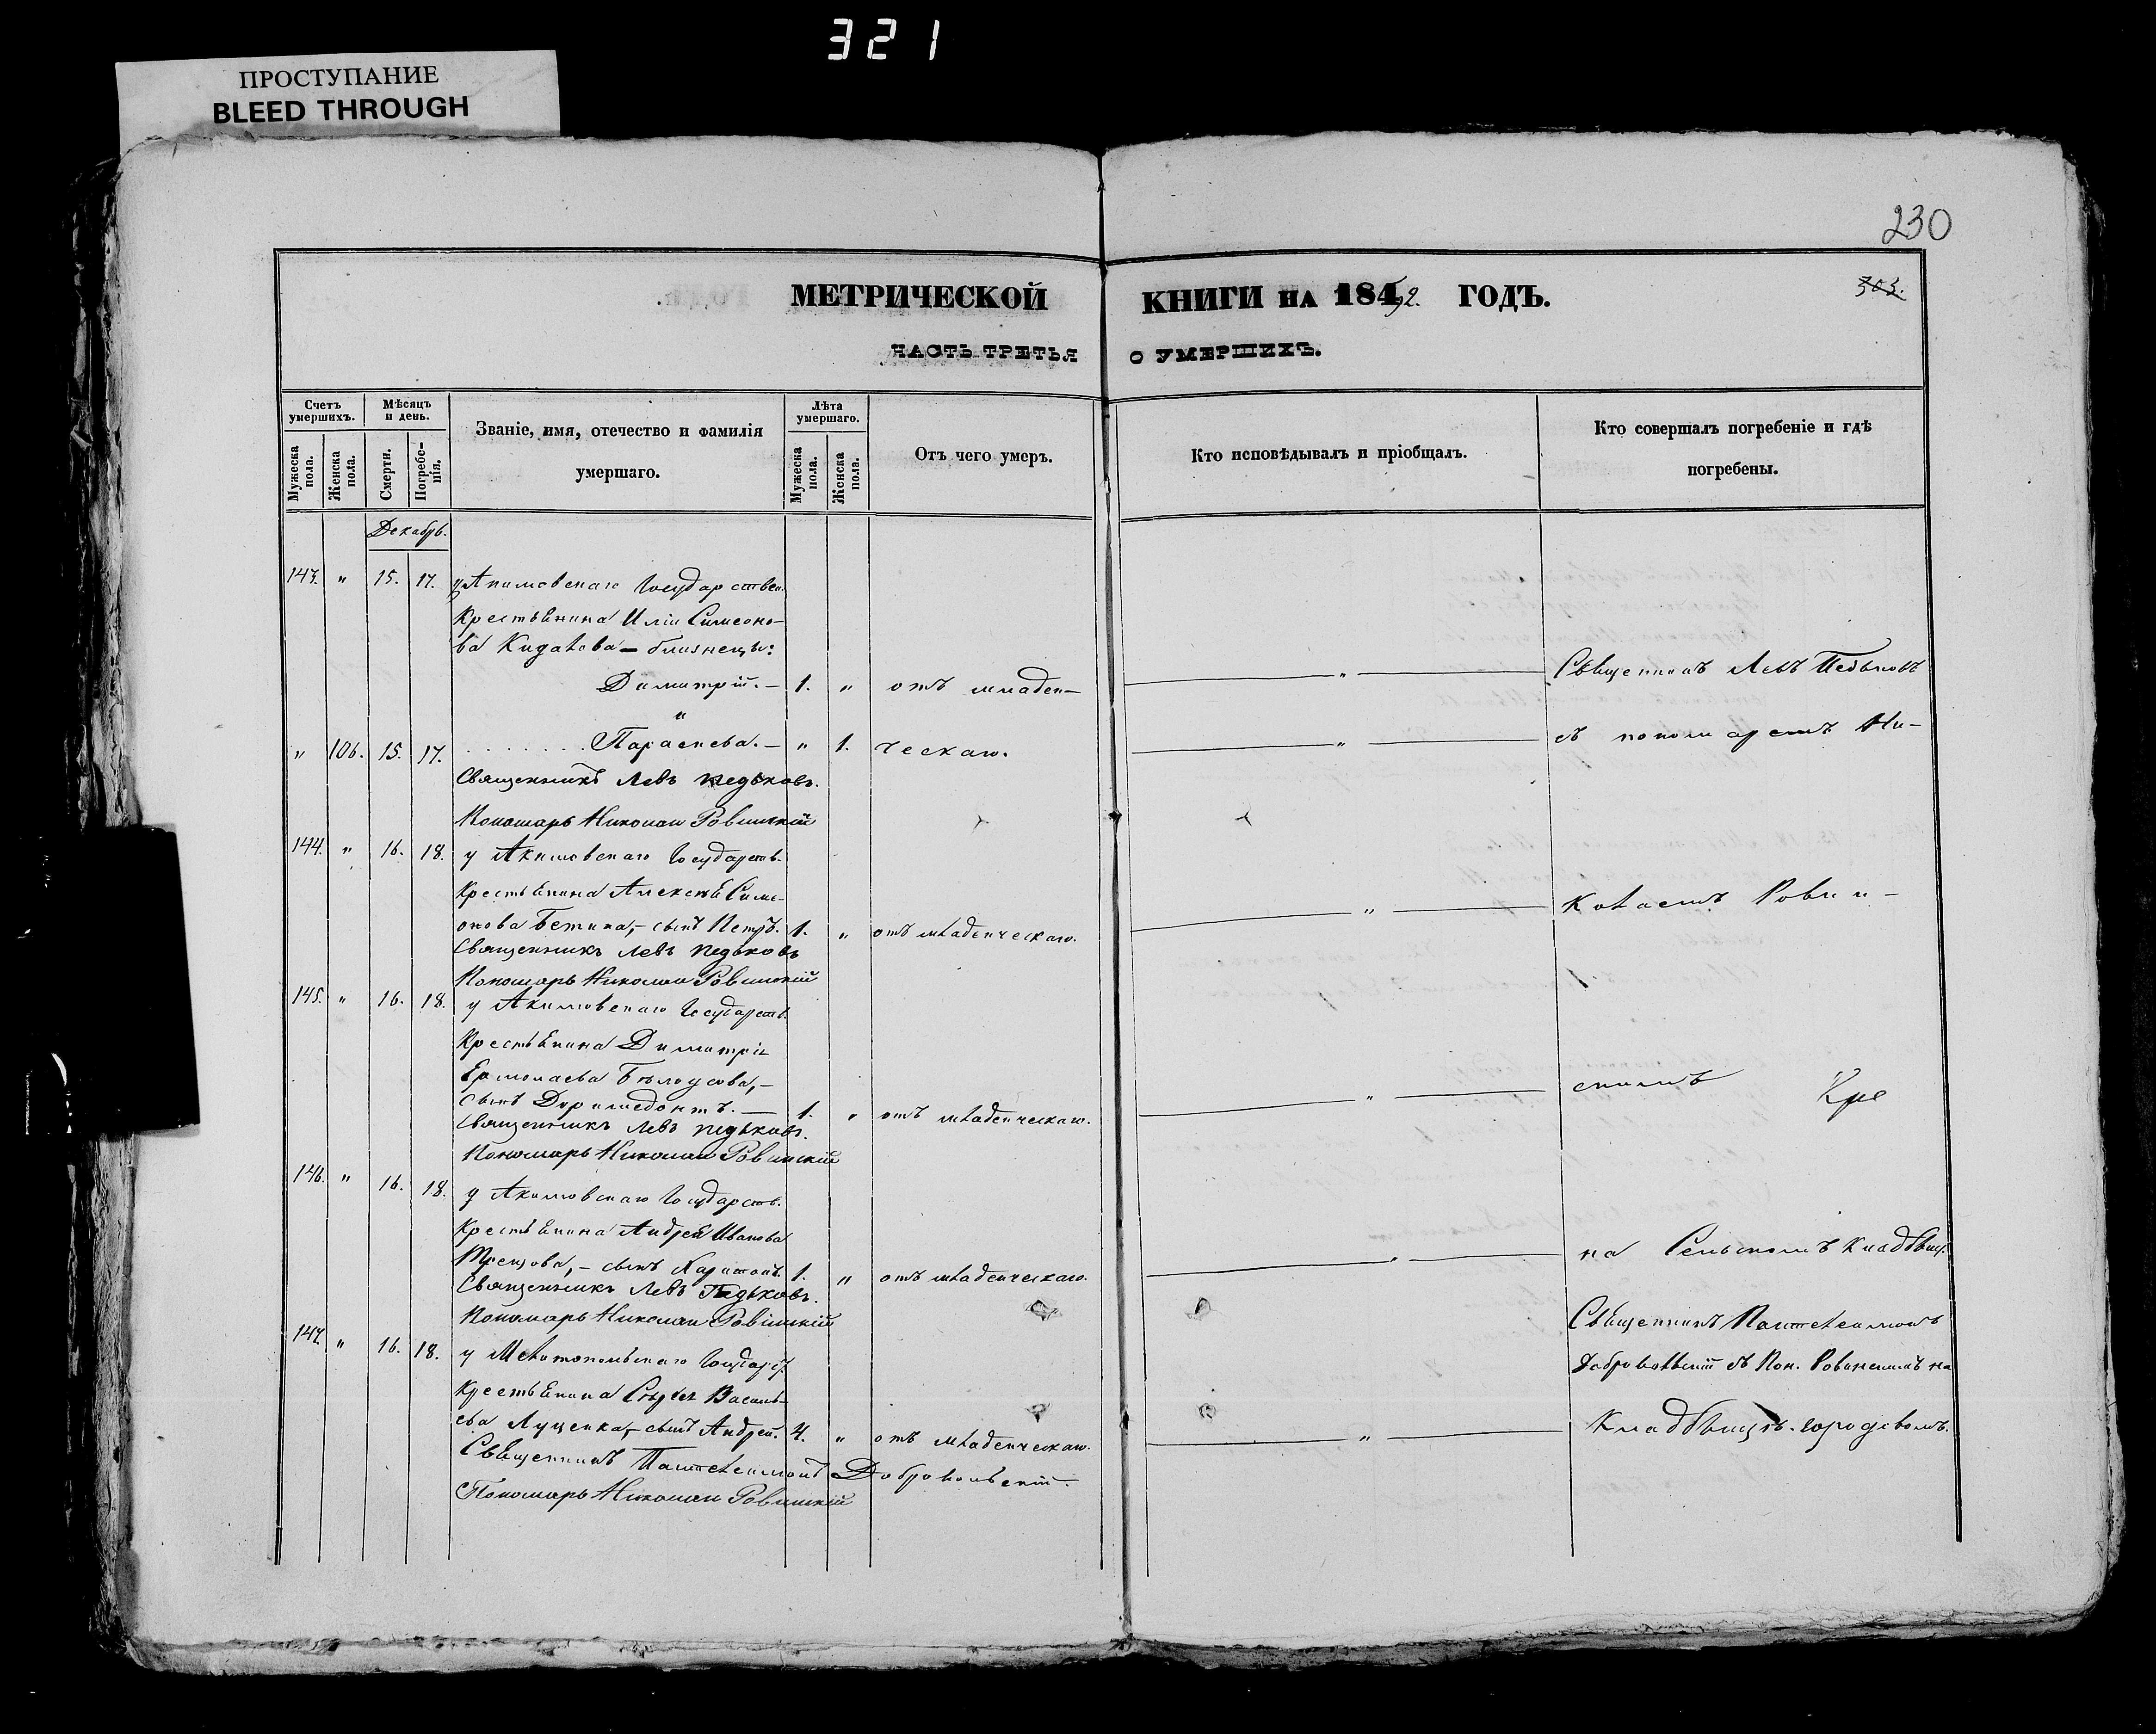 321
ПРОСТУПАНИЕ
BLEED THROUGH
230
МЕТРИЧЕСКОЙ КНИГИ НА 1852. ГОДЪ.
303.
ЧАСТЬ ТРЕТЬЯ О УМЕРШИХЪ.
Счетъ умершихъ.
Мѣсяцъ и день.
Званіе, имя, отечество и фамилія умершаго.
Лѣта умершаго.
Отъ чего умеръ.
Кто исповѣдывалъ и пріобщалъ.
Кто совершалъ погребеніе и гдѣ погребены.
Мужеска пола.
Женска пола.
Смерти.
Погребенія.
Мужеска пола.
Женска пола.
Декабрь.
143. " 15. 17. у Акимовскаго Государствен.
крестьянина Иліи Симеоно-
ва Кидалова – близнецы:
Димитрій. – 1. " отъ младен- " Священникъ Левъ Педьковъ
и
" 106. 15. 17. Параскева. – " 1. ческаго. " съ пономаремъ Ни-
Священникъ Левъ Педьковъ.
Пономарь Николай Ровинскій
144. " 16. 18. у Акимовскаго Государств.
крестьянина Алексѣя Симе-
онова Бетина, – сынъ Петръ. 1. " отъ младенческаго. " колаемъ Ровин-
Священникъ Левъ Педьковъ
Пономарь Николай Ровинскій
145. " 16. 18. у Акимовскаго Государств.
крестьянина Димитрія
Ермолаева Бѣлоусова, –
сынъ Доримедонтъ. – 1. " отъ младенческаго. " скимъ
Священникъ Левъ Педьковъ.
Пономарь Николай Ровинскій
146. " 16. 18. у Акимовскаго Государств.
крестьянина Андрея Иванова
сынъ Харитонъ. 1. " отъ младенческаго. " на Сельскомъ кладбищ.
Священникъ Левъ Педьковъ.
Пономарь Николай Ровинскій
Священникъ Пантелеимонъ
147. " 16. 18. у Мелитопольскаго Государ.
Добровольскій съ Пон. Ровинскимъ на
крестьянина Сергѣя Василь-
ева Луценка, – сынъ Андрей. 4. " отъ младенческаго. " кладбищѣ городскомъ.
Священникъ Пантелеимонъ Добровольскій.
Пономарь Николай Ровинскій